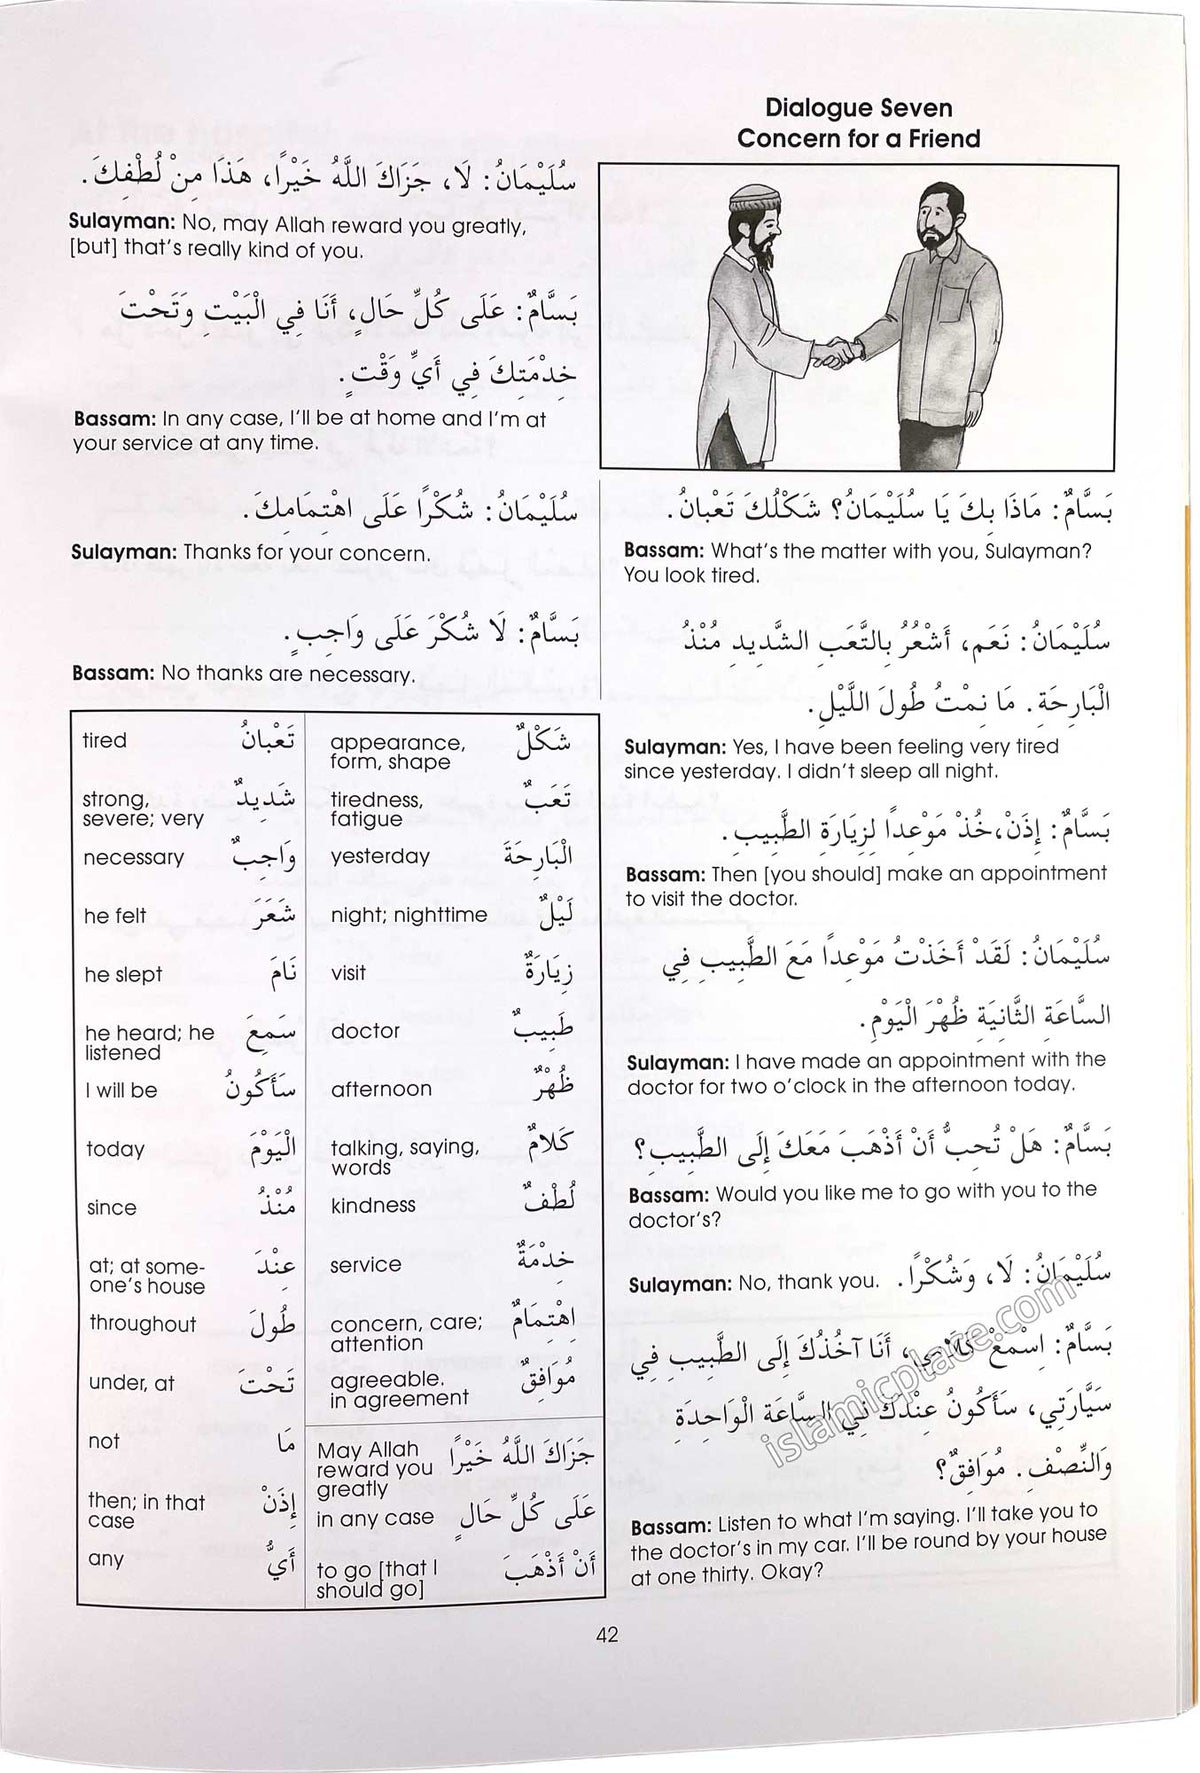 Dialogue Seven
Concern for a Friend
بَسَّامٌ: مَاذَا بِكَ يَا سُلَيْمَانُ؟ شَكْلُكَ تَعْبانُ.
Bassam: What's the matter with you, Sulayman?
You look tired.
سُلَيْمَانُ: نَعَم، أَشْعُرُ بِالتَّعَبِ الشَّدِيدِ مُنْذُ
الْبَارِحَةِ. مَا نِمْتُ طُولَ اللَّيْلِ.
Sulayman: Yes, I have been feeling very tired
since yesterday. I didn't sleep all night.
بَسَّامٌ: إِذَنْ،خُذْ مَوْعِداً لِزِيَارَةِ الطَّبِيبِ.
Bassam: Then [you should] make an appointment
to visit the doctor.
سُلَيْمَانُ: لَقَدْ أَخَذْتُ مَوْعِداً مَعَ الطَّبِيبِ فِي
السَّاعَةِ الثَّانِيَةِ ظُهْرَ الْيَوْمِ.
Sulayman: I have made an appointment with the
doctor for two o'clock in the afternoon today.
بَسَّامٌ: هَلْ تُحِبُّ أَنْ أَذْهَبَ مَعَكَ إِلَى الطَّبِيبِ؟
Bassam: Would you like me to go with you to the
doctor's?
سُلَيْمَانُ: لَا، وَشُكْرًا.
Sulayman: No, thank you.
بَسَّامٌ: اِسْمَعْ كَلَامِي، أَنَا آخُذُكَ إِلَى الطَّبِيبِ فِي
سَيَّارَتِي، سَأَكُونُ عِنْدَكَ فِي السَّاعَةِ الْوَاحِدَةِ
وَالنِّصْفِ. مُوَافِقٌ؟
Bassam: Listen to what I'm saying. I'll take you to
the doctor's in my car. I'll be round by your house
at one thirty. Okay?
سُلَيْمَانُ: لَا، جَزَاكَ اللَّهُ خَيْرًا، هَذَا مِنْ لُطْفِكَ.
Sulayman: No, may Allah reward you greatly,
[but] that's really kind of you.
بَسَّامٌ: عَلَى كُلِّ حَالٍ، أَنَا فِي الْبَيْتِ وَتَحْتَ
خِدْمَتِكَ فِي أَيِّ وَقْتٍ.
Bassam: In any case, I'll be at home and I'm at
your service at any time.
سُلَيْمَانُ: شُكْرًا عَلَى اهْتِمَامِكَ.
Sulayman: Thanks for your concern.
بَسَّامٌ: لَا شُكْرَ عَلَى وَاجِبٍ.
Bassam: No thanks are necessary.
tired تَعْبانُ
strong, شَدِيدٌ
severe; very
necessary وَاجِبٌ
he felt شَعَرَ
he slept نَامَ
he heard; he سَمِعَ
listened
I will be سَأَكُونُ
today الْيَوْمَ
since مُنْذُ
at; at some- عِنْدَ
one's house
throughout طُولَ
under, at تَحْتَ
not مَا
then; in that إِذَنْ
case
any أَيُّ
appearance, شَكْلٌ
form, shape
tiredness, تَعَبٌ
fatigue
yesterday الْبَارِحَةَ
night; nighttime لَيْلٌ
visit زِيَارَةٌ
doctor طَبِيبٌ
afternoon ظُهْرٌ
talking, saying, كَلَامٌ
words
kindness لُطْفٌ
service خِدْمَةٌ
concern, care; اهْتِمَامٌ
attention
agreeable. مُوَافِقٌ
in agreement
May Allah جَزَاكَ اللَّهُ خَيْرًا
reward you
greatly
in any case عَلَى كُلِّ حَالٍ
to go [that I أَنْ أَذْهَبَ
should go]
42
islamicplace.com